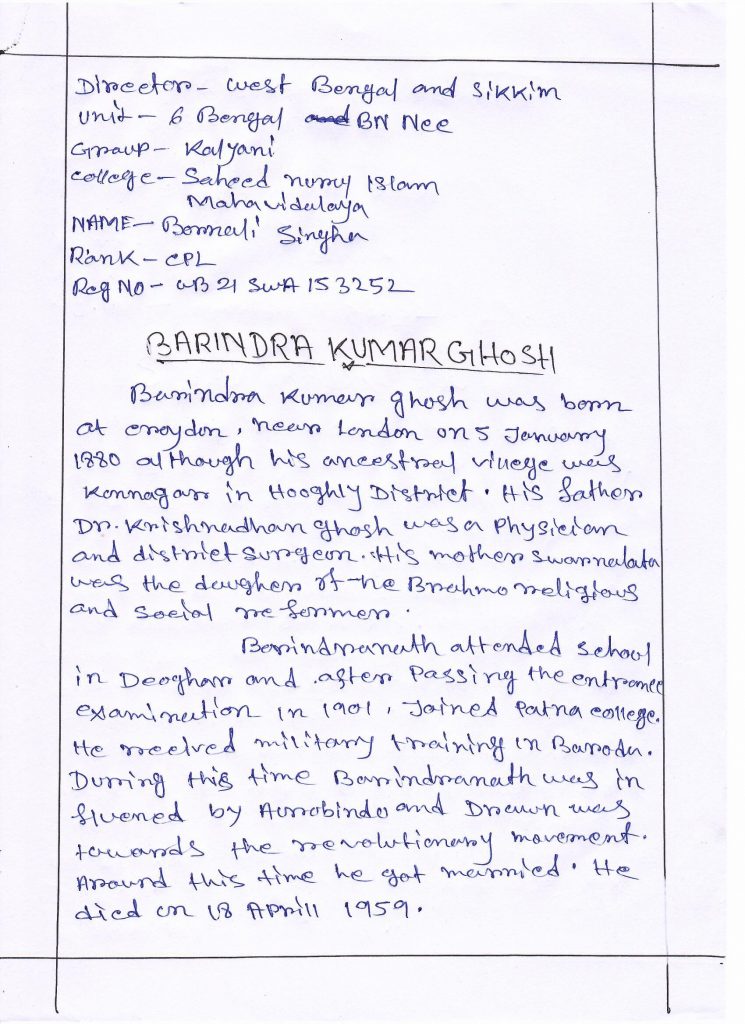 Director - West Bengal and Sikkim
Unit - 6 Bengal and BN Ncc
Group - Kalyani
College - Saheed nuruy Islam
Mahavidalaya
NAME - Bornali Singha
Rank - CPL
Reg No - WB 21 SWA 153252
BARINDRA KUMAR GHOSH
Barindra Kumar ghosh was born
at croydon, near London on 5 January
1880 although his ancestral villege was
Konnagar in Hooghly District. His father
Dr. Krishnadhan ghosh was a Physician
and district surgeon. His mother Swarnalata
was the daugher of the Brahmo religious
and social reformer.
Barindranath attended school
in Deoghar and after Passing the entrance
examination in 1901, Joined Patna college.
He recived military training in Baroda.
During this time Barindranath was in
fluened by Aurobindo and Drawn was
towards the revolutionary movement.
Around this time he got married. He
died on 18 Aprill 1959.